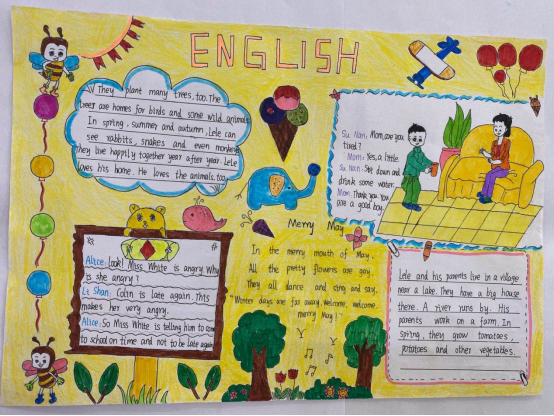 ENGLISH
They plant many trees, too. The
trees are homes for birds and some wild animals
In spring, summer and autumn, Lele can
see rabbits, snakes and even monkeys
they live happily together year after year. Lele
loves his home. He loves the animals, too.
Su Nan: Mom, are you
tired?
Mom: Yes, a little.
Su Nan: Sit down and
drink some water.
Mom: Thank you. You
are a good boy.
Merry May
In the merry mouth of May.
All the pretty flowers are gay.
They all dance and sing and say,
"Winter days are far away, welcome, welcome,
merry May!"
Alice: Look! Miss White is angry. Why
is she angry?
Li Shan: Colin is late again. This
makes her very angry.
Alice: So Miss White is telling him to come
to school on time and not to be late again
Lele and his parents live in a village
near a lake. They have a big house
there. A river runs by. His
parents work on a farm. In
spring, they grow tomatoes,
potatoes and other vegetables.